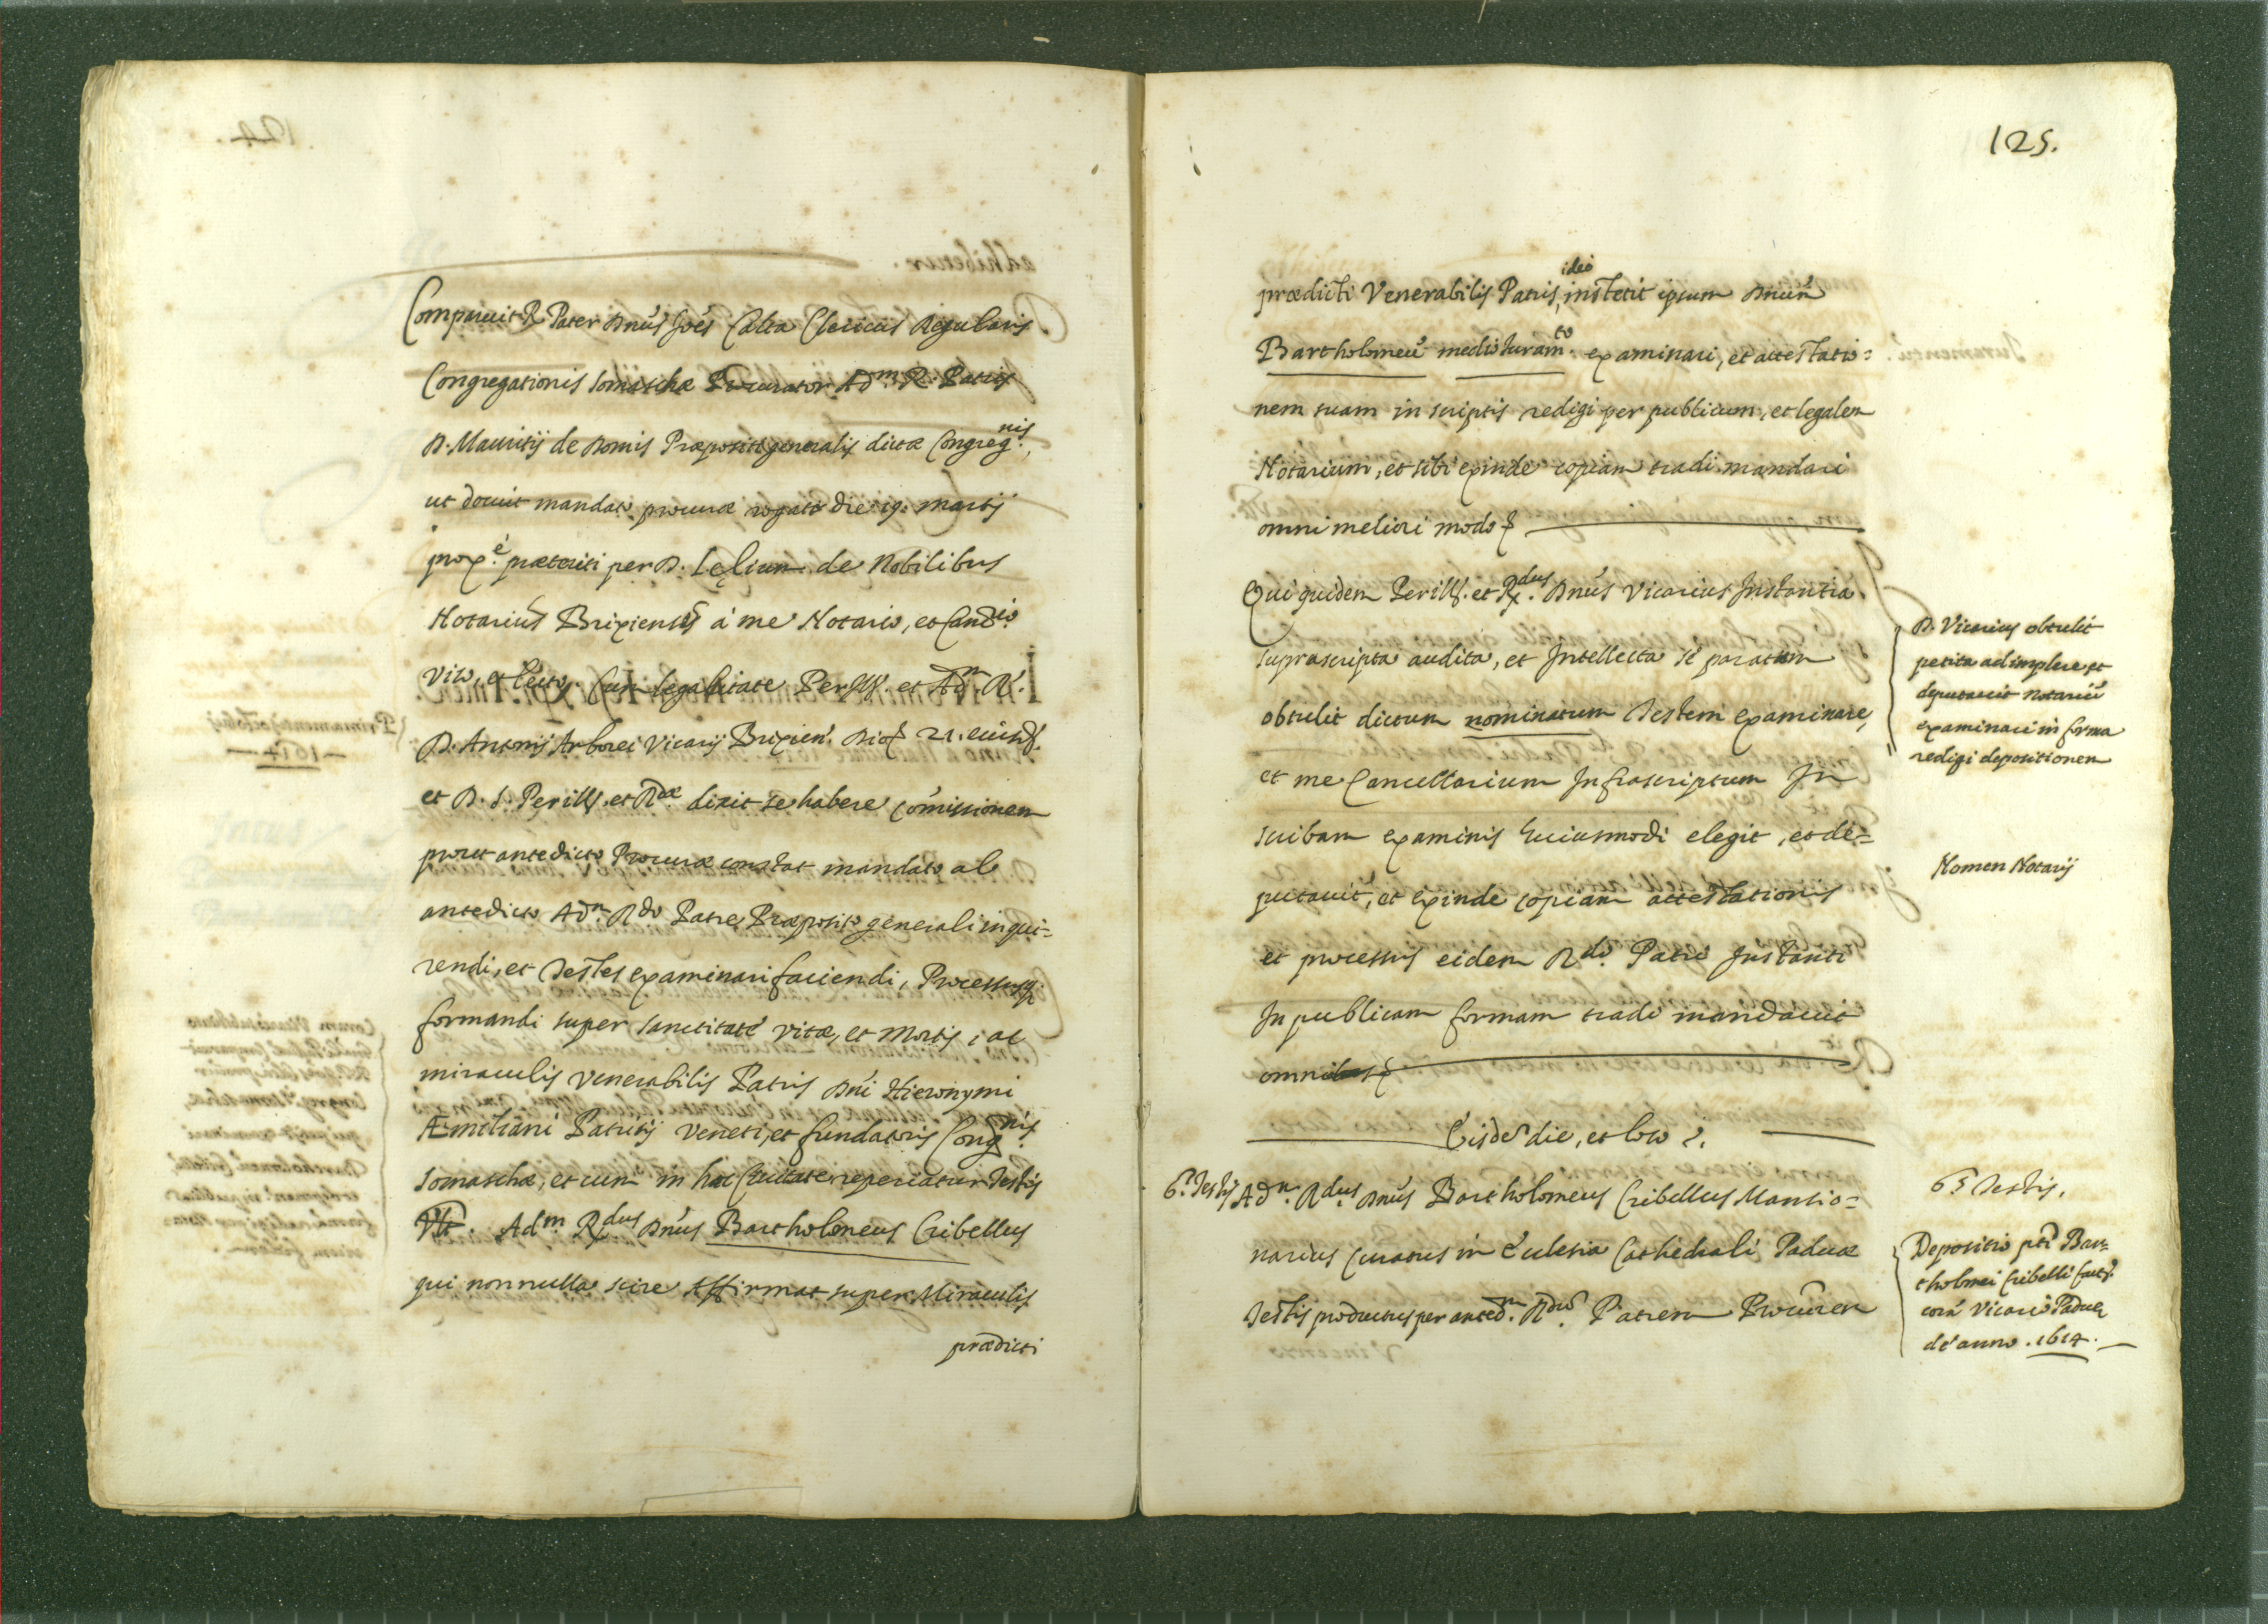 Comparuit R. Pater Dnûs Joẽs Calta Clericus Regularis
Congregationis Somaschæ Procurator Adm. R. Patris
D. Mauritij de Domis Præpositi generalis dictæ Congregnis.,
ut docuit mandato procuræ rogato die 19. Martij
proxe. præteriti per D. Lęlium de Nobilibus
Notarium Brixiensẽ à me Notario, et Cancrio.
viso, et lecto. Cum legalitate Perill. et Adm. R.
D. Antonij Arborei Vicarij Brixien. die 21. eiusd.
et D. S. Perill. et Rdæ dixit se habere comissionem
prout antedicto Procuræ constat mandato ab
antedicto Adm. Rdo Patre Præposito generali inqui=
rendi, et Testes examinari faciendi, Processusq;
formandi super sanctitate vitæ, et Mortis, ac
miraculis venerabilis Patris Dni Hieronymi
Æmiliani Patritij Veneti, et fundatoris Congnis.
Somaschæ, et cum in hac Civitate reperiatur Testis
Adm. Rdus Dnûs Bartholomeus Cribellus
qui nonnulla scire affirmat super Miraculis
prædicti
125.
prædicti Venerabilis Patris, ideo institit ipsum Dnum
Bartholomeũ medio Juramto. examinari, et attestatio=
nem suam in scriptis redigi per publicum, et legalem
Notarium, et sibi exinde copiam tradi mandari
omni meliori modo
Qui quidem Perill. et Rdus. Dnûs Vicarius Instantia
suprascripta audita, et Intellecta se paratum
obtulit dictum nominatum Testem examinare,
et me Cancellarium Infrascriptum In
scribam examinis huiusmodi elegit, et de=
putavit, et exinde copiam attestationis
et processus eidem Rdo. Patri Instanti
In publicam formam tradi mandavit
omni
Eisdẽ die, et loco
6.s Testis Adm. Rdus. Dnûs Bartholomeus Cribellus Mansio=
narius Curatus in Ecclesia Cathedrali Paduæ
Testis productus per anted. Rdum. Patrem Procurem
D. Vicarius obtulit
petita adimplere et
deputavit Notariũ
examinari in forma
redigi depositionem
Nomen Notarij
6.s Testis.
Depositio pti Bar=
tholomei Cribelli fact.
corã Vicario Paduę
de anno .1614.